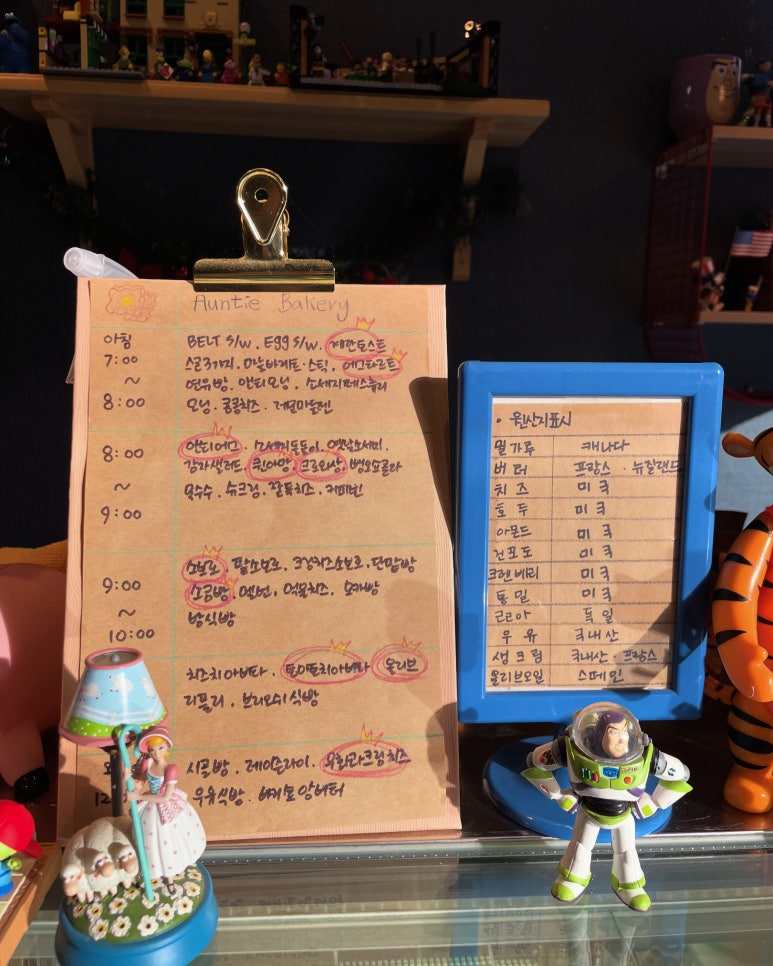 Auntie Bakery
아침
7:00
~
8:00
BELT S/W. EGG S/W. 계란토스트
스콘3가지. 마늘바게트·스틱. 에그타르트
연유빵. 앤티모닝. 소세지페스츄리
모닝. 콩콩치즈.
8:00
~
9:00
앤티에그. 옛날소세지.
감자샐러드. 퀸아망. 크로와상. 뺑오쇼콜라
옥수수. 슈크림. 찰떡치즈. 커피번
9:00
~
10:00
소보로. 팥소보로. 크림치즈소보로. 단팥빵
소금빵. 먹물치즈. 모카빵
밤식빵
치즈치아바타. 토마토치아바타 올리브
브리오쉬식빵
시골빵. 무화과크림치즈
우유식빵. 앙버터
• 원산지표시
밀가루 캐나다
버터 프랑스 · 뉴질랜드
치즈 미국
호두 미국
아몬드 미국
건포도 미국
크렌베리 미국
통밀 미국
코코아 독일
우유 국내산
생크림 국내산 · 프랑스
올리브오일 스페인